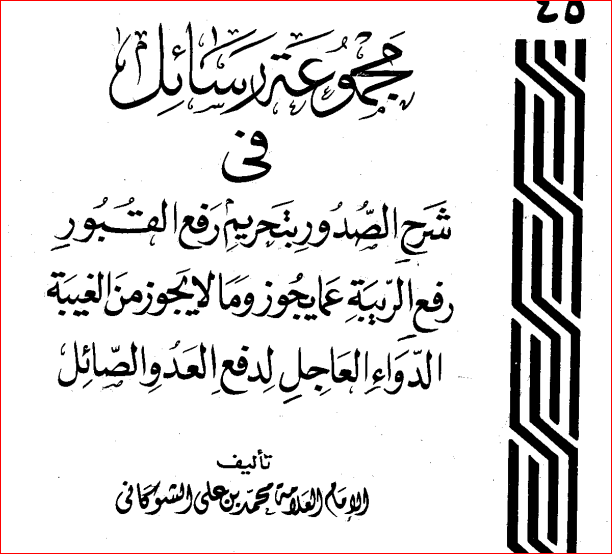 ٤٥
مجموعة رسائل
في
شرح الصُّدُورِ بتَحريمِ رَفع القُبُورِ
رفع الرِّيبَةِ عمَّا يجُوز ومَا لا يَجوز منَ الغيبَة
الدّوَاءِ العَاجِلِ لِدفع العَدُو الصّائِل
تأليف
الإمَام العَلامة محمّد بن علي الشوكاني